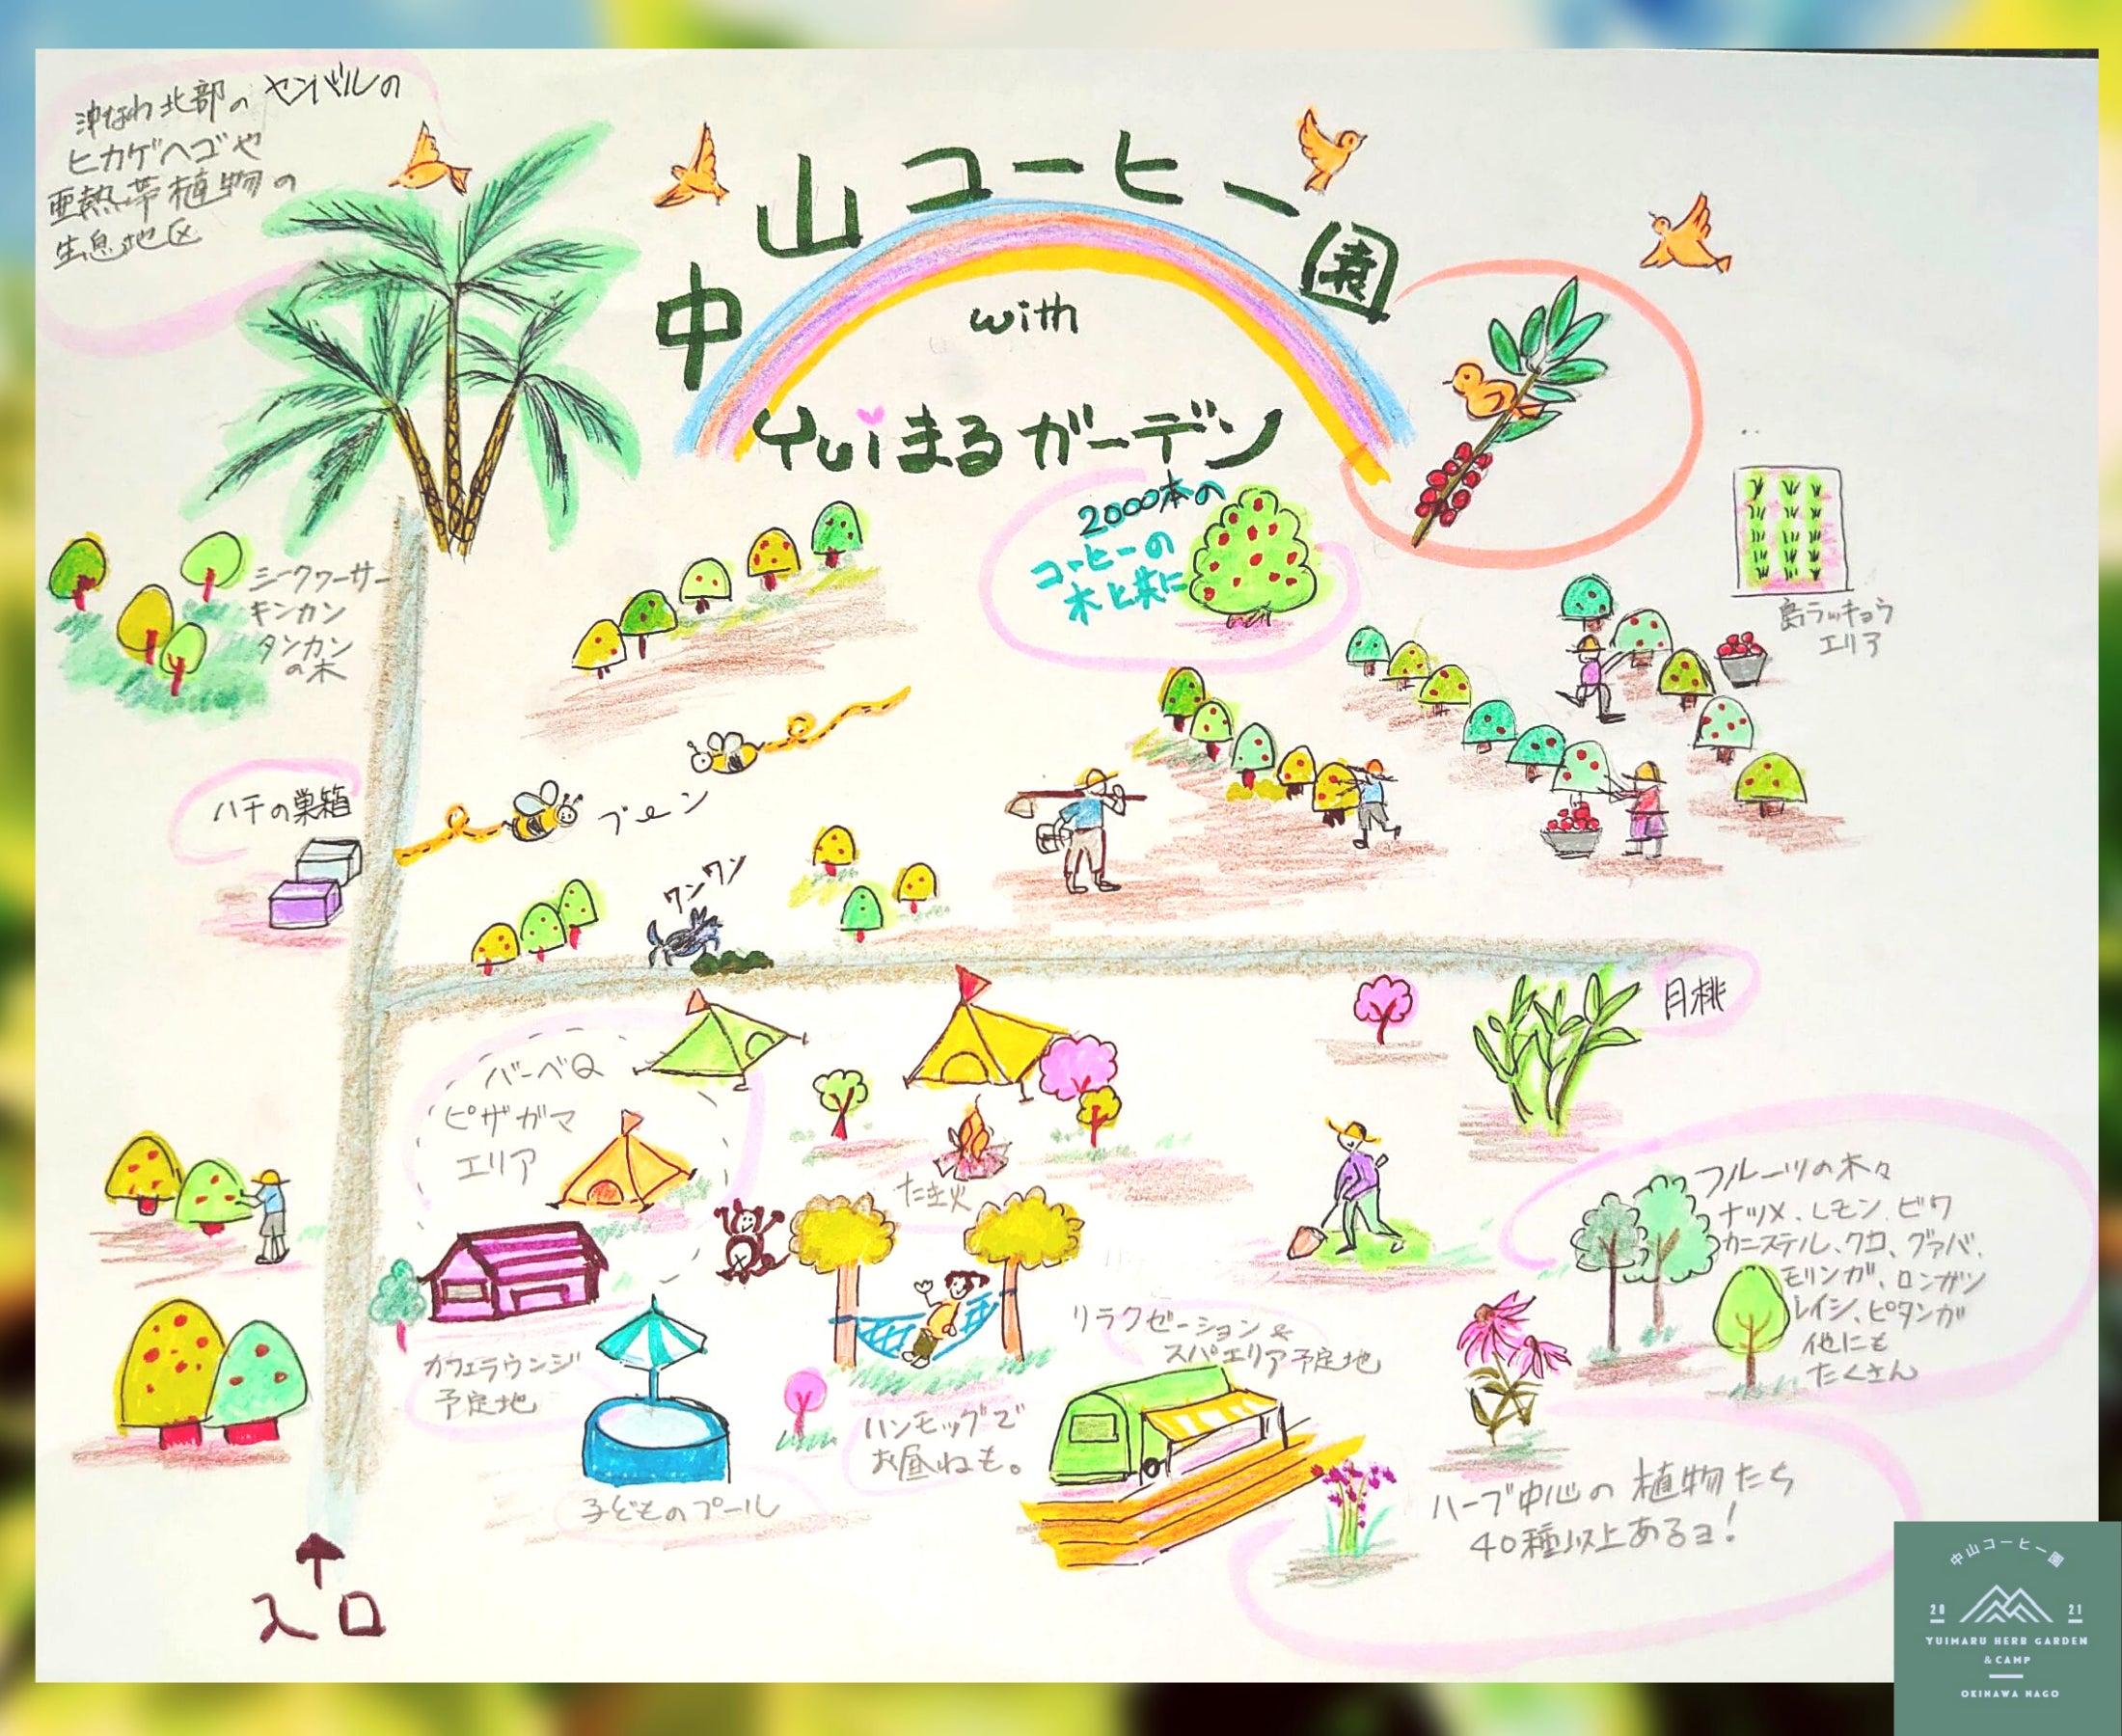 沖なわ北部のヤンバルの
ヒカゲヘゴや
亜熱帯植物の
生息地区
中山コーヒー園
with
Yuiまるガーデン
2000本の
コーヒーの
木と共に
島ラッキョウ
エリア
シークワーサー
キンカン
タンカン
の木
ハチの巣箱
ブーン
ワンワン
月桃
バーベQ
ピザガマ
エリア
たき火
フルーツの木々
ナツメ、レモン、ビワ
カニステル、クワ、グァバ、
モリンガ、ロンガン
レイシ、ピタンガ
他にも
たくさん
カフェラウンジ
予定地
リラクゼーション&
スパエリア予定地
ハンモックで
お昼ねも。
子どものプール
ハーブ中心の植物たち
40種以上あるヨ!
入口
中山コーヒー園
20 21
YUIMARU HERB GARDEN
&CAMP
OKINAWA NAGO